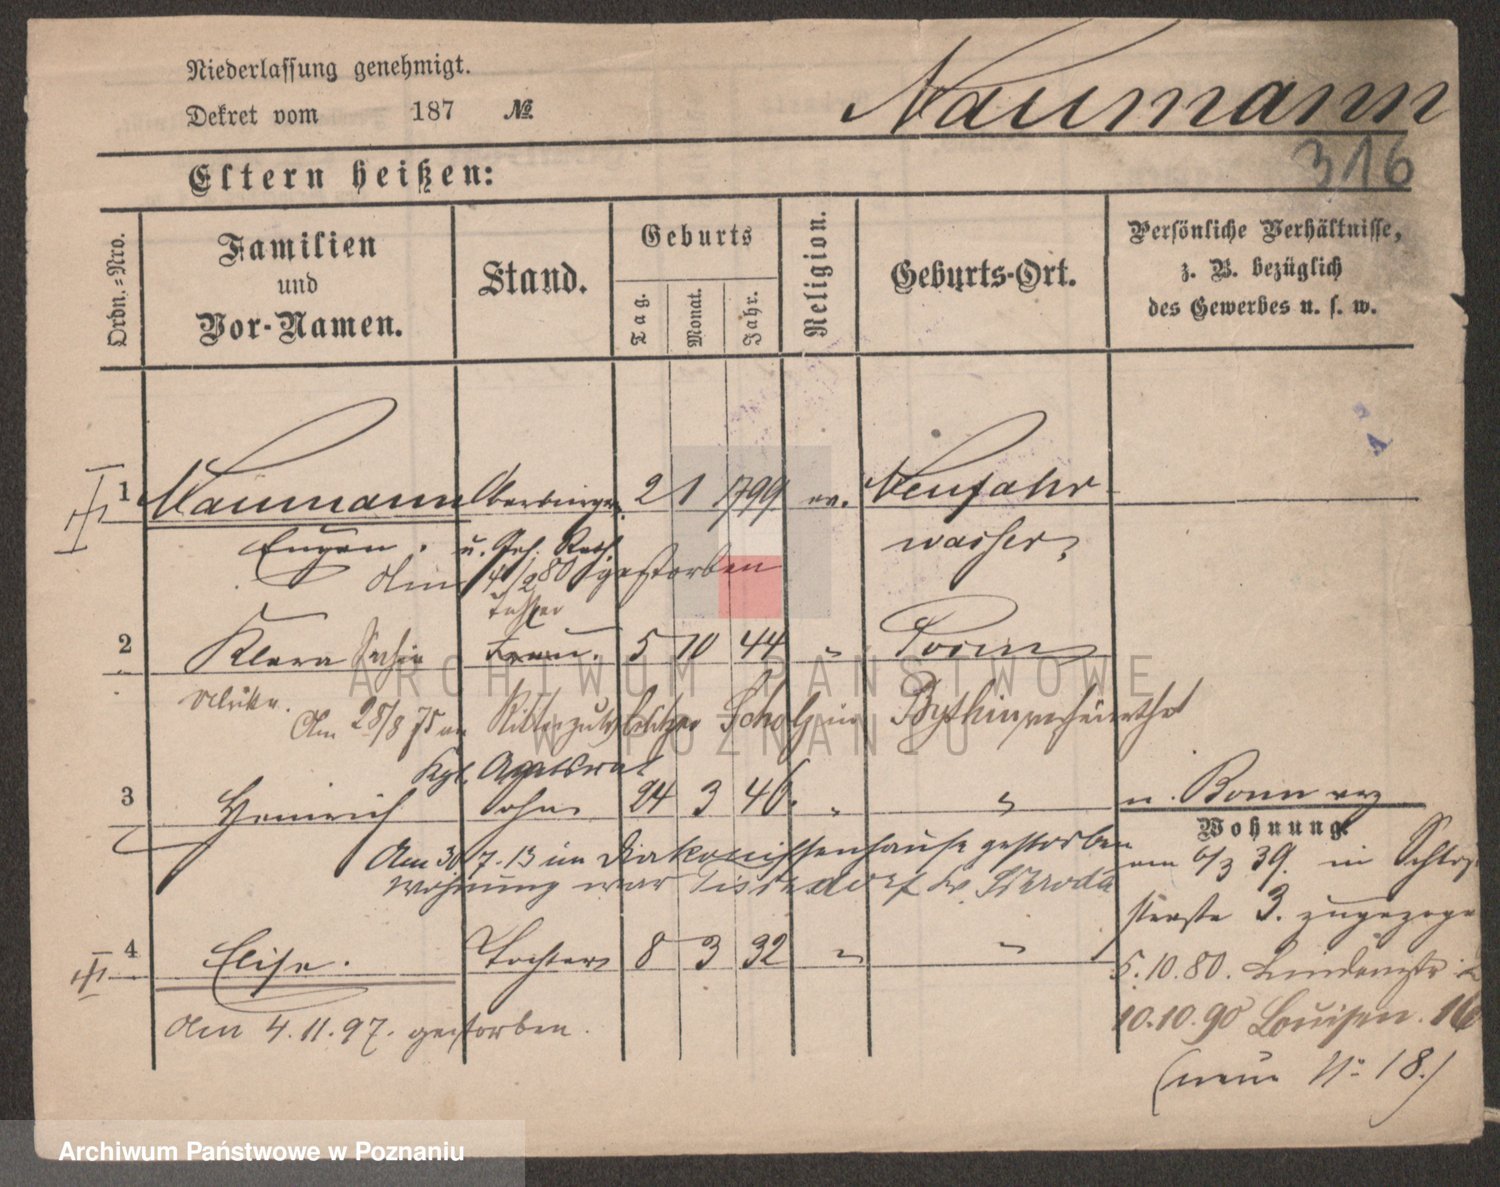 Niederlassung genehmigt.
Naumann
Dekret vom 187 №
316
Eltern heißen:
Ordn.-Nro.
Familien
und
Vor-Namen.
Stand.
Geburts
Tag.
Monat.
Jahr.
Religion.
Geburts-Ort.
Persönliche Verhältnisse,
z. B. bezüglich
des Gewerbes u. s. w.
1 Naumann Oberbürger 2 1 1799 ev. Neufahr
Eugen. u. Geh. Rath wasser,
Am 4/2 80 gestorben
Tochter
2 Klara Frau. 5 10 44 " Posen
Am 28/8 75 an Rittergutsbesitzer Scholz in Bythin verheirathet
Kgl. Amtsrat
3 Heinrich Sohn 24 3 46. " " n. Bonn
Wohnung.
Am 30/7.13 im Diakonissenhause gestorben
Wohnung war
am 6/3 39. in Schloß
straße 3. zugezogen
4 Elise. Tochter 8 3 32 " "
5.10.80. Lindenstr
Am 4.11.97. gestorben.
10.10.90 Louisen. 16
(neue N° 18.)
ARCHIWUM PAŃSTWOWE
W POZNANIU
Archiwum Państwowe w Poznaniu